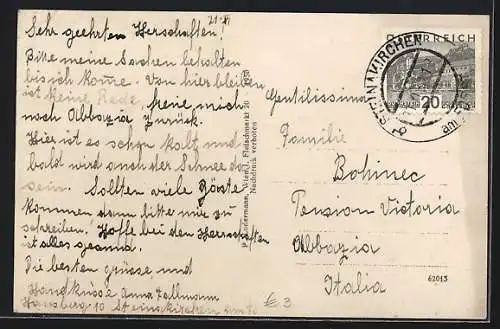 21.XI
Sehr geehrten Herschaften!
Bitte meine Sachen behalten
bis ich kome. Von hier bleiben
ist keine Rede. kehre mich
nach Abbazia zurück.
Hier ist es schon kalt und
bald wird auch der Schnee da
sein. Sollten viele Gäste
kommen dann bitte mir zu
schreiben. Hoffe bei den Herrschaften
ist alles gesund.
Die besten grüsse und
Handküsse Anna
Hansberg 10 Steinakirchen am
P. Ledermann, Wien, I., Fleischmarkt 20 1930
Nachdruck verboten
ÖSTERREICH
20
STEINAKIRCHEN
am
Gentilissima
Familie
Bohinec
Pension Victoria
Abbazia
Italia
62013
€ 3